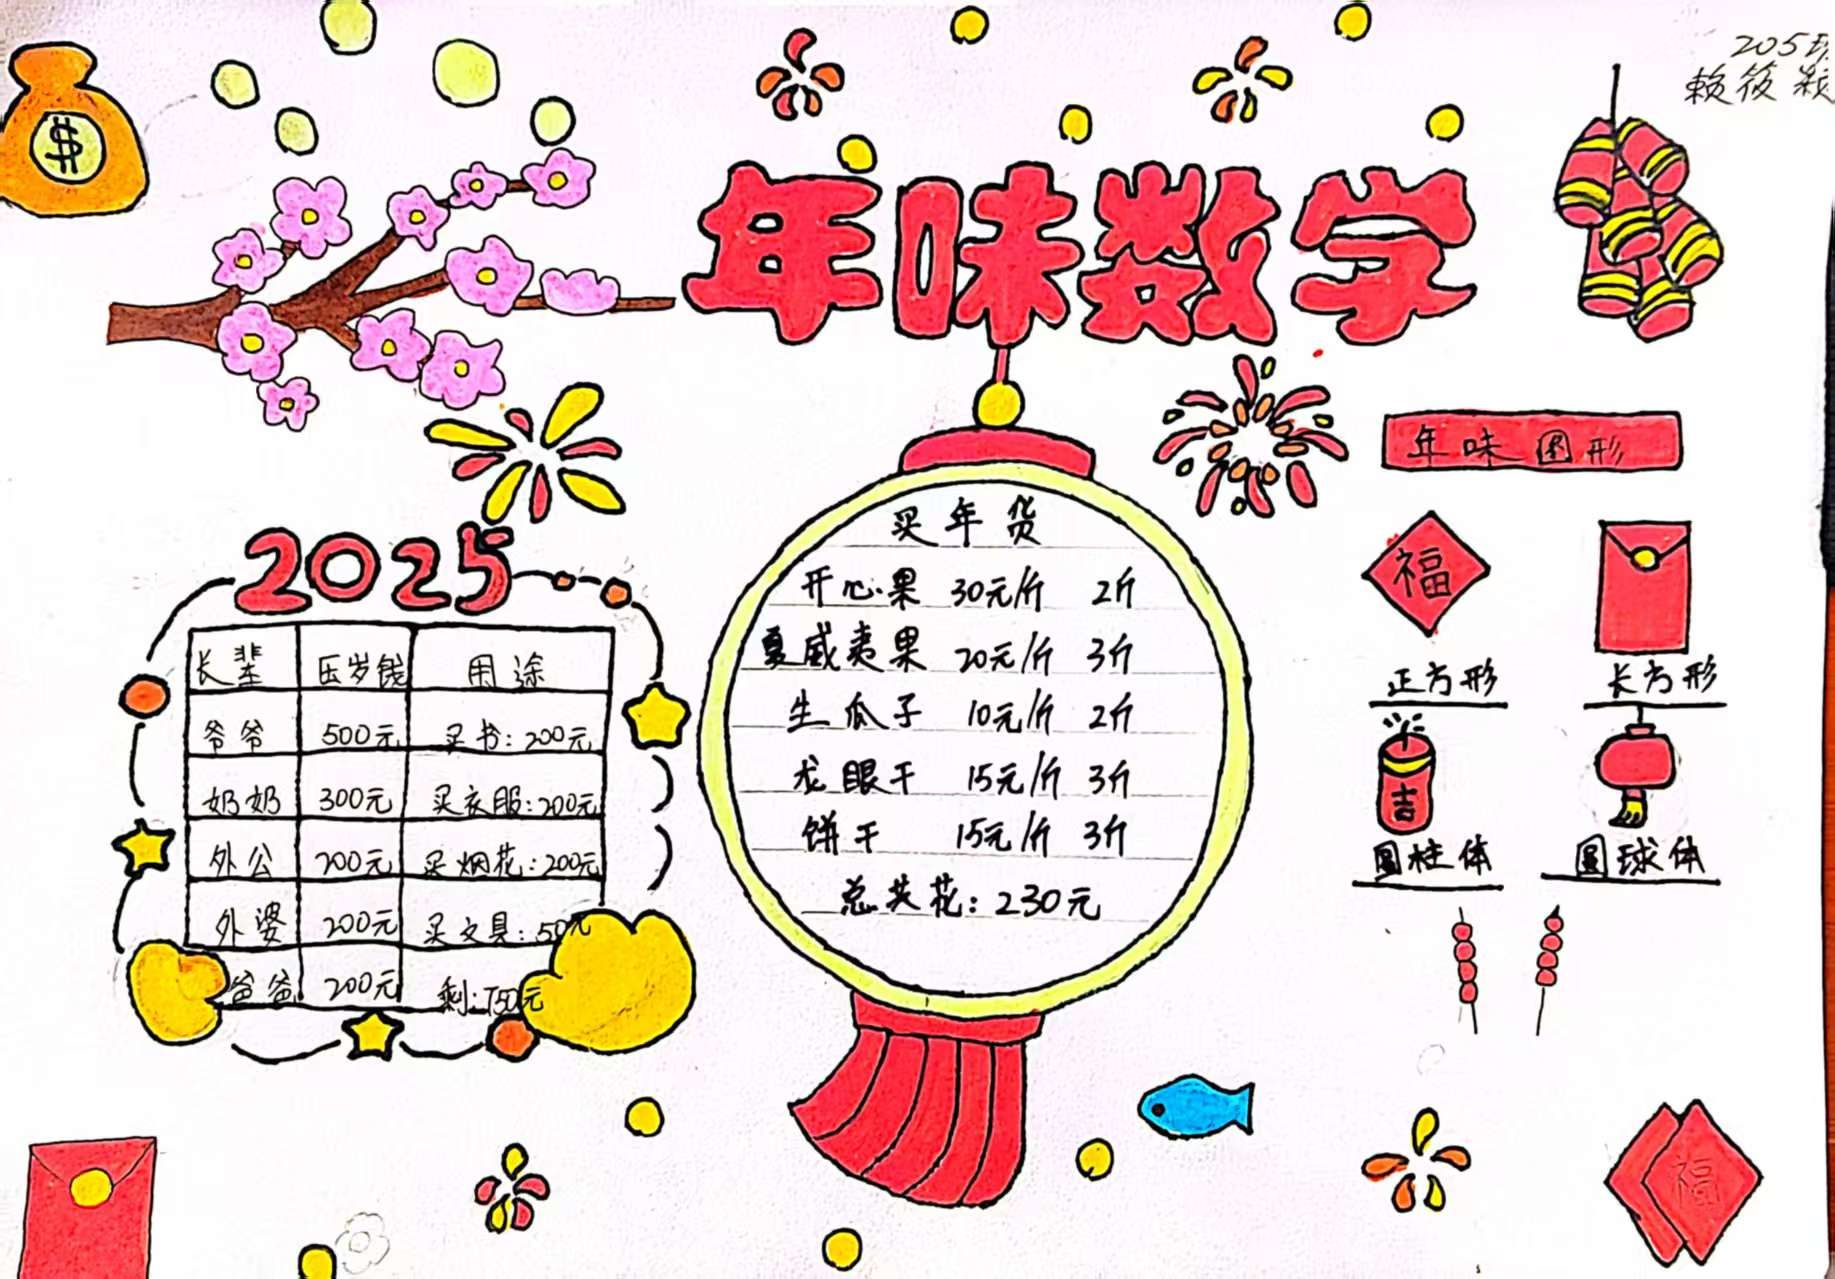 205班
年味数学
年味图形
2025
长辈 压岁钱 用途
爷爷 500元 买书:200元
奶奶 300元 买衣服:200元
外公 200元 买烟花:200元
外婆 200元 买文具:50元
爸爸 200元 剩:750元
买年货
开心果 30元/斤 2斤
夏威夷果 20元/斤 3斤
生瓜子 10元/斤 2斤
龙眼干 15元/斤 3斤
饼干 15元/斤 3斤
总共花:230元
福
正方形 长方形
吉
圆柱体 圆球体
福
$